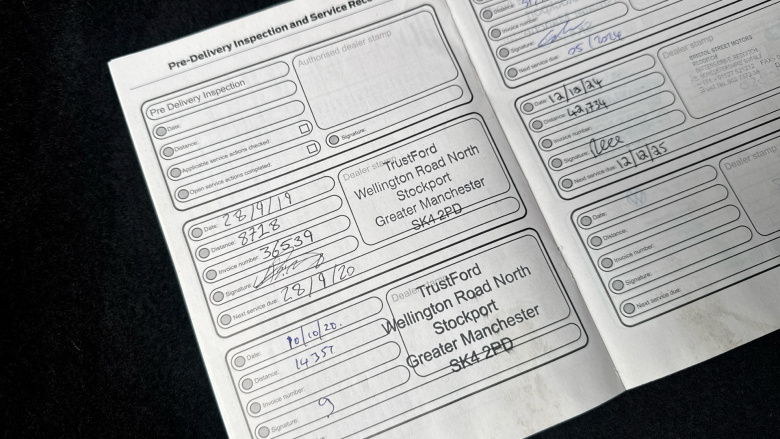 Pre-Delivery Inspection and Service Rec
Pre Delivery Inspection
Date:
Distance:
Applicable service actions checked:
Open service actions completed:
Authorised dealer stamp
Signature:
Date: 28/9/19
Distance: 8728
Invoice number: 36539
Signature:
Next service due: 28/9/20
Dealer stamp
TrustFord
Wellington Road North
Stockport
Greater Manchester
SK4 2PD
Date: 10/10/20.
Distance: 14351
Invoice number:
Signature:
Dealer
TrustFord
Wellington Road North
Stockport
Greater Manchester
SK4 2PD
Distance:
Invoice number:
Signature:
Next service due: 05/2024
Date: 12/12/24
Distance: 42,734
Invoice number:
Signature:
Next service due: 12/12/25
Dealer stamp
BRISTOL STREET MOTORS
Date:
Distance:
Invoice number:
Signature:
Next service due:
Dealer stamp